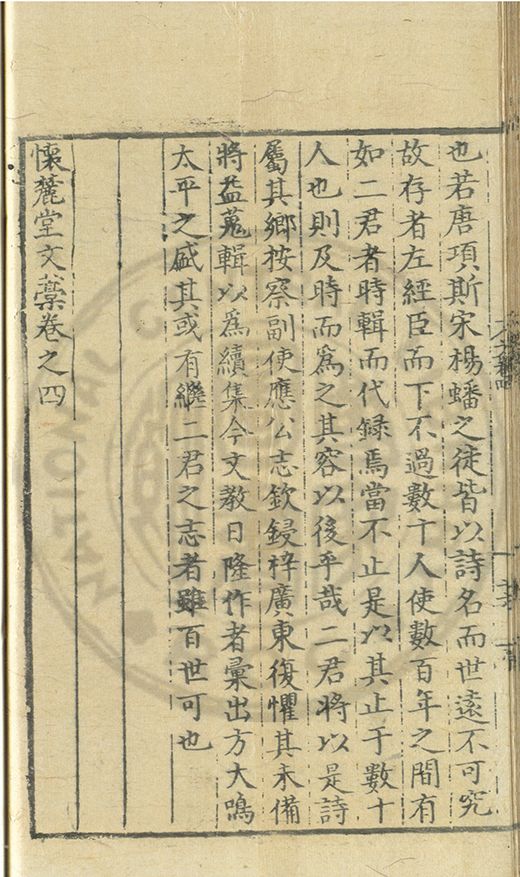 也若唐項斯宋楊蟠之徒皆以詩名而世遠不可究
故存者左經臣而下不過數十人使數百年之間有
如二君者時輯而代録焉當不止是以其止于數十
人也則及時而爲之其容以後乎哉二君將以是詩
屬其鄉按察副使應公志欽鋟梓廣東復懼其未備
將益蒐輯以爲續集今文教日隆作者彙出方大鳴
太平之盛其或有繼二君之志者雖百世可也
懷麓堂文藁卷之四